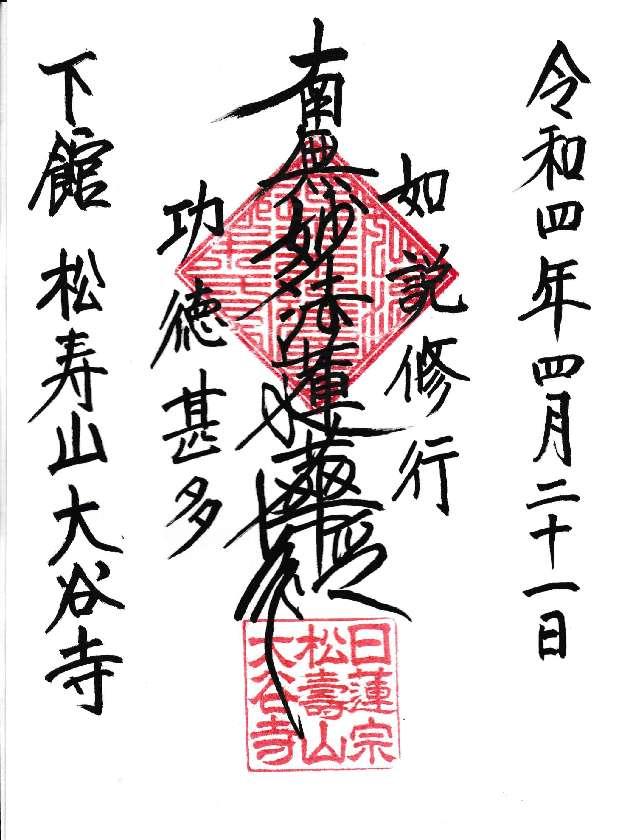 令和四年四月二十一日
如説修行
南無妙法蓮華経
功徳甚多
下館 松寿山大谷寺
日蓮宗
松壽山
大谷寺